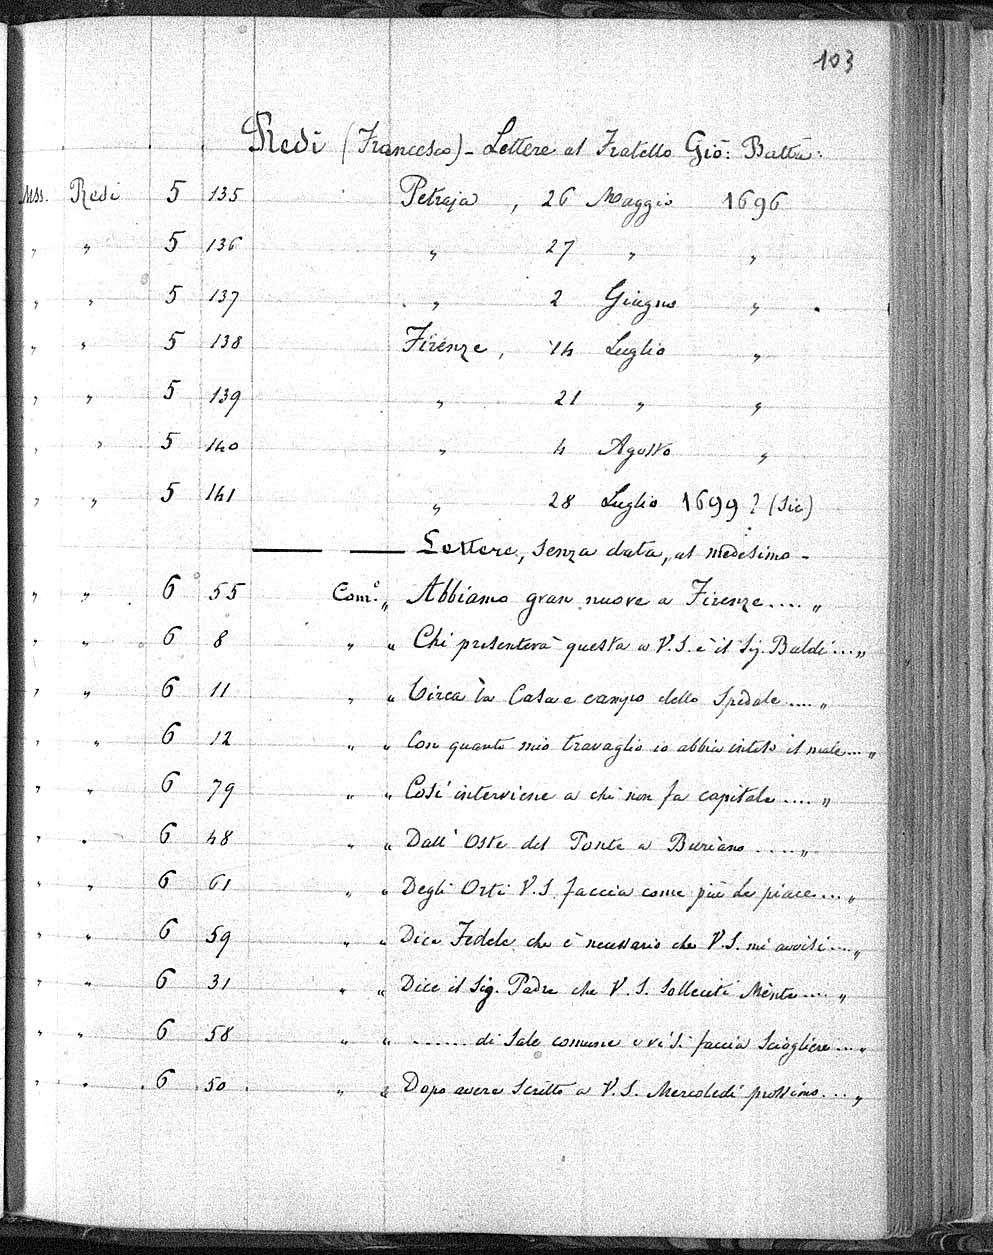 103
Redi (Francesco) - Lettere al Fratello Gio: Batta:
Mss. Redi 5 135 Petraja, 26 Maggio 1696
" " 5 136 " 27 " "
" " 5 137 " 2 Giugno "
" " 5 138 Firenze, 14 Luglio "
" " 5 139 " 21 " "
" " 5 140 " 4 Agosto "
" " 5 141 " 28 Luglio 1699? (sic)
— — Lettere, senza data, al medesimo -
" " 6 55 Com.° " Abbiamo gran nuove a Firenze.... "
" " 6 8 " " Chi presenterà questa a V.S. è il Sig. Baldi... "
" " 6 11 " " Circa la Casa e campo dello Spedale.... "
" " 6 12 " " Con quanto mio travaglio io abbia inteso il male... "
" " 6 79 " " Così interviene a chi non fa capitale.... "
" " 6 48 " " Dall' Oste del Ponte a Buriano..... "
" " 6 61 " " Degli Orti V.S. faccia come più Le piace... "
" " 6 59 " " Dice Fedele che è necessario che V.S. mi avvisi... "
" " 6 31 " " Dice il Sig. Padre che V.S. solleciti.... "
" " 6 58 " " ...... di Sale comune e vi si faccia sciogliere... "
" " 6 50 " " Dopo avere scritto a V.S. Mercoledi prossimo... "